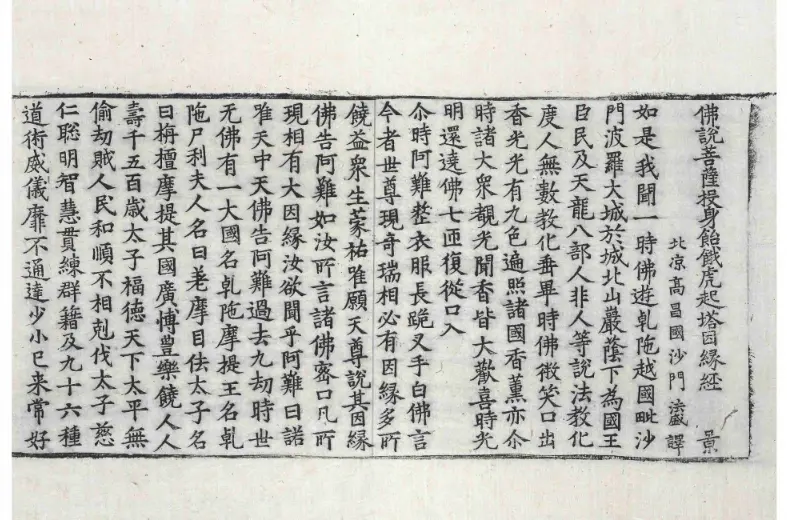 佛說菩薩投身飴餓虎起塔因緣經 景
北涼高昌國沙門法盛譯
如是我聞一時佛遊乹陁越國毗沙
門波羅大城於城北山巖蔭下為國王
臣民及天龍八部人非人等說法教化
度人無數教化垂畢時佛微笑口出
香光光有九色遍照諸國香薰亦尒
時諸大衆覩光聞香皆大歡喜時光
明還遶佛七匝復從口入
尒時阿難整衣服長跪叉手白佛言
今者世尊現奇瑞相必有因緣多所
饒益衆生蒙祐唯願天尊說其因緣
佛告阿難如汝所言諸佛密口凡所
現相有大因緣汝欲聞乎阿難曰諾
唯天中天佛告阿難過去九劫時世
无佛有一大國名乹陁摩提王名乹
陁尸利夫人名曰差摩目佉太子名
曰栴檀摩提其國廣博豐樂饒人人
壽千五百歲太子福德天下太平無
偷劫賊人民和順不相剋伐太子慈
仁聡明智慧貫練群籍及九十六種
道術威儀靡不通達少小已来常好